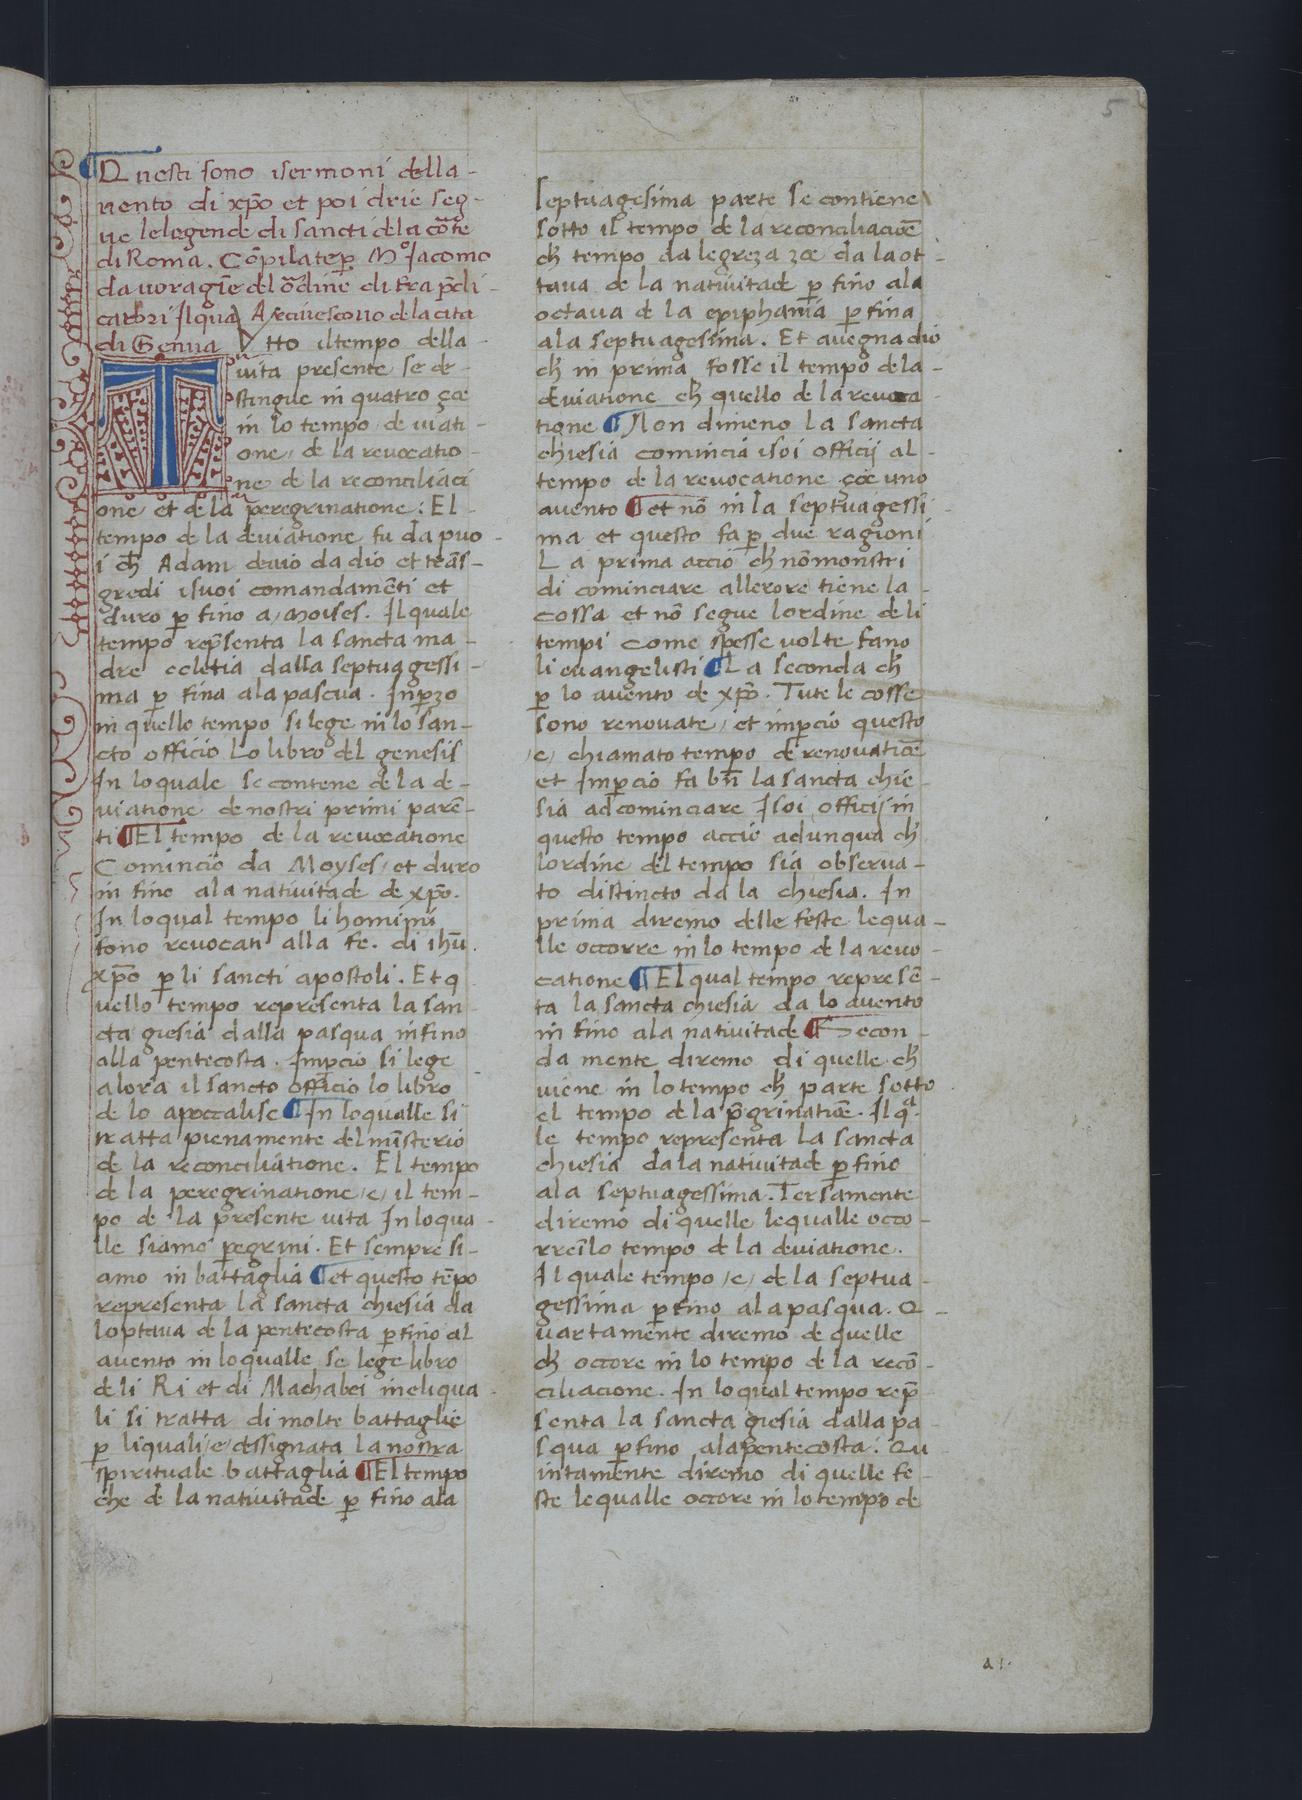 5
¶ Questi sono i sermoni della-
uento di xp̄o et poi drie seg-
ue le legende di sancti de la cōrte
di Roma. Cōpilate ꝑ Mº Jacomo
da uoragīe del ōrdine di fra p̄di-
catori Ilqua Arciuescouo de la cita
di Genua
Vtto il tempo della-
uita presente se de-
stingue in quatro çoe
in lo tempo de uiati-
one, de la reuocatio-
ne de la reconciliaci
one et de la peregrinatione: El
tempo de la deuiatione fu da puo-
i ch̄ Adam deuio da dio et trās-
gredi i suoi comandamēti et
duro ꝑ fino a moyses. Il quale
tempo rep̄senta la sancta ma-
dre eclesia dalla septuagessi-
ma ꝑ fina ala pascua. Inꝑzo
in quello tempo si lege in lo san-
cto officio Lo libro del genesis
In lo quale se contene de la de-
uiatione de nostri primi parē-
ti ¶ El tempo de la reuocatione
Cominciò da Moyses, et duro
in fino ala natiuitade de xp̄o.
In lo qual tempo li homini
fono reuocati alla fe. di ihū.
xp̄o ꝑ li sancti apostoli. Et q
uello tempo representa la san
cta giesia dalla pasqua infino
alla pentecosta. Imꝑcio si lege
alora il sancto officio lo libro
de lo apocalise ¶ In lo qualle si
tratta pienamente del misterio
de la reconciliatione. El tempo
de la peregrinatione, e, il tem-
po de la presente uita In lo qua-
lle siamo ꝑegrini. Et sempre si-
amo in battaglia ¶ et questo tēpo
representa la sancta chiesia da
loptaua de la pentecosta ꝑ fino al
auento in lo qualle se lege libro
de li Ri et di Machabei in eliqua-
li si tratta di molte battaglie
ꝑ li quali, e, dessignata la nostra
spirituale battaglia ¶ El tempo
che de la natiuitade ꝑ fino ala
septuagesima parte se contiene
sotto il tempo de la reconciliaciōe
ch̄ tempo da legreza zoe da la ot-
taua de la natiuitade ꝑ fino ala
octaua de la epiphania ꝑ fina
ala septuagesima. Et auegna dio
ch̄ in prima fosse il tempo de la-
deuiatione ch̄ quello de la reuoca-
tione ¶ Non dimeno la sancta
chiesia comincia i soi officij al-
tempo de la reuocatione çoe uno
auento ¶ et nō in la septuagessi-
ma et questo fa ꝑ due ragioni
La prima acciò ch̄ nō monstri
di cominciare allerore tiene la-
cossa et nō segue lordine de li
tempi come spesse uolte fano
li euangelisti ¶ La seconda ch̄
ꝑ lo auento de xp̄o. Tute le cosse
sono renouate, et imꝑciò questo
, e, chiamato tempo de renouatiōe
et Imꝑciò fa bn̄ la sancta chie-
sia ad cominciare I soi officij in
questo tempo acciò adunqua ch̄
lordine del tempo sia obserua-
to distincto da la chiesia. In
prima diremo delle feste lequa-
lle occorre in lo tempo de la reuo
catione ¶ El qual tempo represē-
ta la sancta chiesia da lo auento
in fino ala natiuitade ¶ Secon-
da mente diremo di quelle ch̄
uiene in lo tempo ch̄ parte sotto
el tempo de la p̄grinatiōe. Il qa.
le tempo representa la sancta
chiesia da la natiuitade ꝑ fino
ala septuagessima. Tersamente
diremo di quelle lequalle occo-
rreīlo tempo de la deuiatione.
Il quale tempo, e, de la septua-
gessima ꝑ fino ala pasqua. Q-
uartamente diremo de quelle
ch̄ occore in lo tempo de la recō-
ciliacione. In lo qual tempo rep̄
senta la sancta giesia dalla pa-
squa ꝑ fino ala pentecosta: Qu
intamente diremo di quelle fe-
ste lequalle occore in lo tempo de
a 1.